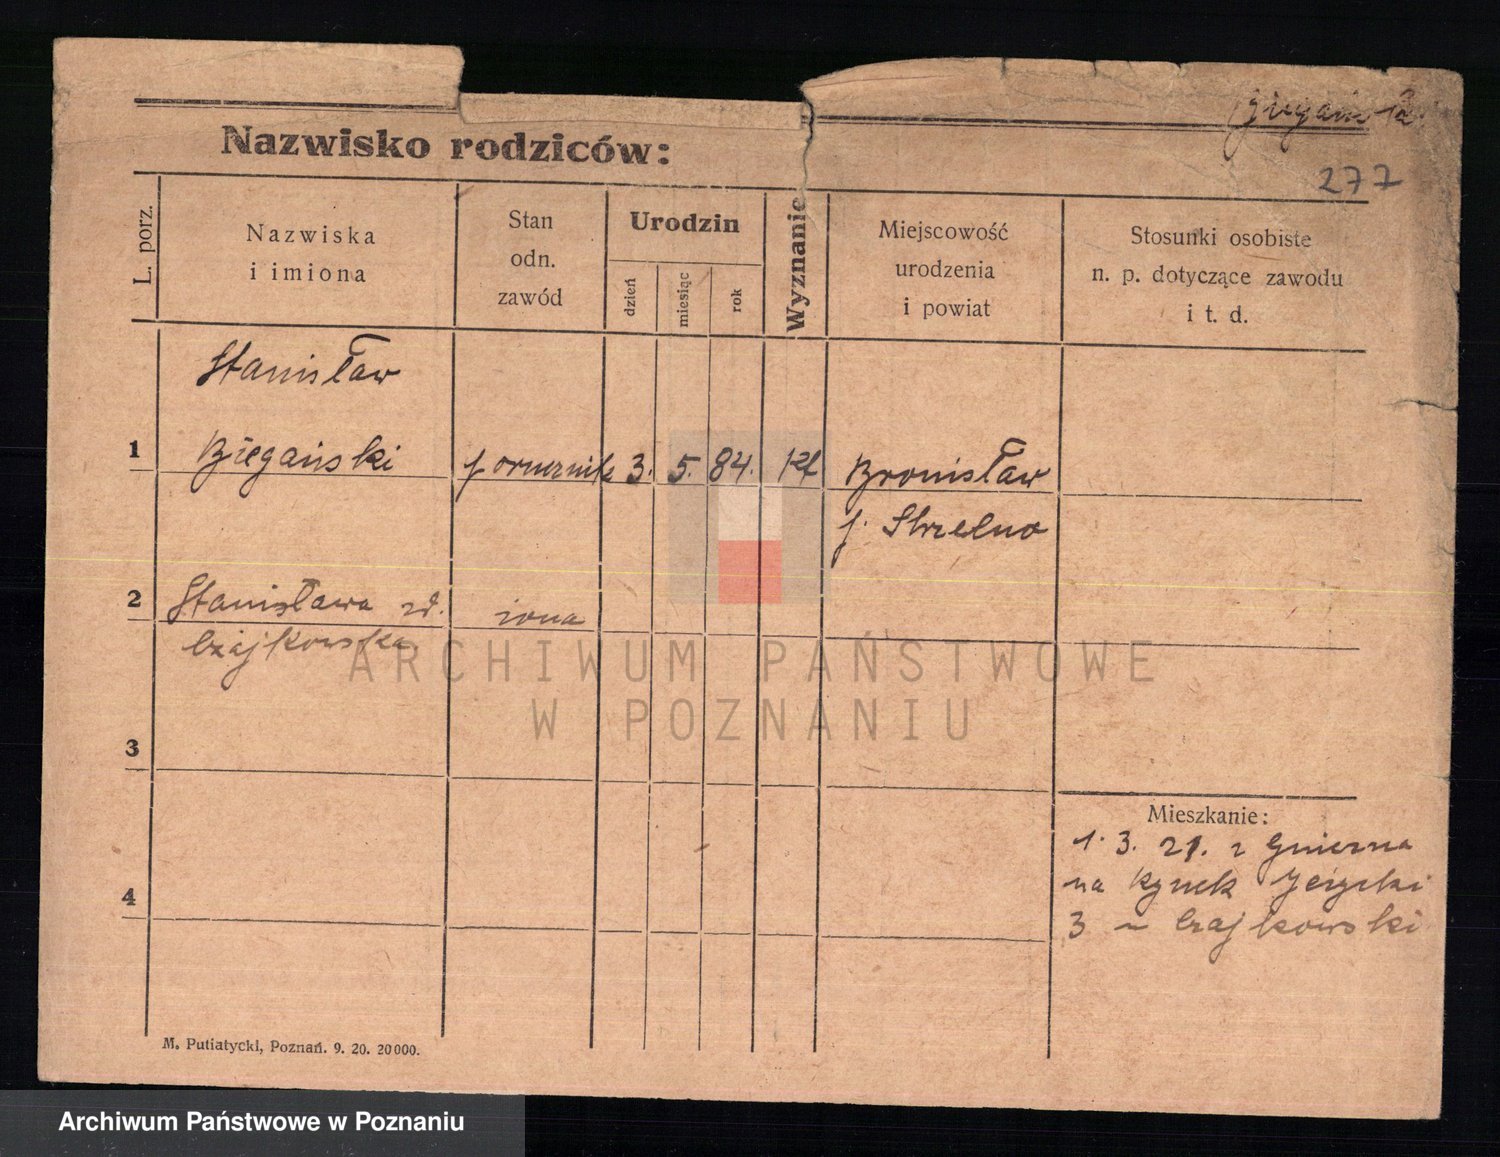 277
Nazwisko rodziców:
L. porz.
Nazwiska
i imiona
Stan
odn.
zawód
Urodzin
dzień
miesiąc
rok
Wyznanie
Miejscowość
urodzenia
i powiat
Stosunki osobiste
n. p. dotyczące zawodu
i t. d.
Stanisław
1 Biegański fornernik 3. 5. 84. kt Bronisław
p. Strzelno
2 Stanisława zd. żona
Czajkowska
3
Mieszkanie:
1. 3. 21. z Gniezna
na Rynek Jeżycki
3 u Czajkowski
4
M. Putiatycki, Poznań. 9. 20. 20000.
ARCHIWUM PAŃSTWOWE
W POZNANIU
Archiwum Państwowe w Poznaniu